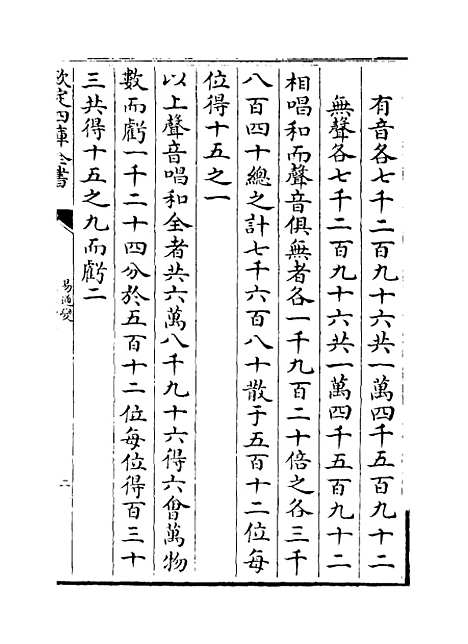 有音各七千二百九十六共一萬四千五百九十二
無聲各七千二百九十六共一萬四千五百九十二
相唱和而聲音俱無者各一千九百二十倍之各三千
八百四十總之計七千六百八十散于五百十二位每
位得十五之一
以上聲音唱和全者共六萬八千九十六得六會萬物
數而虧一千二十四分於五百十二位每位得百三十
三共得十五之九而虧二
欽定四庫全書
易通變
二